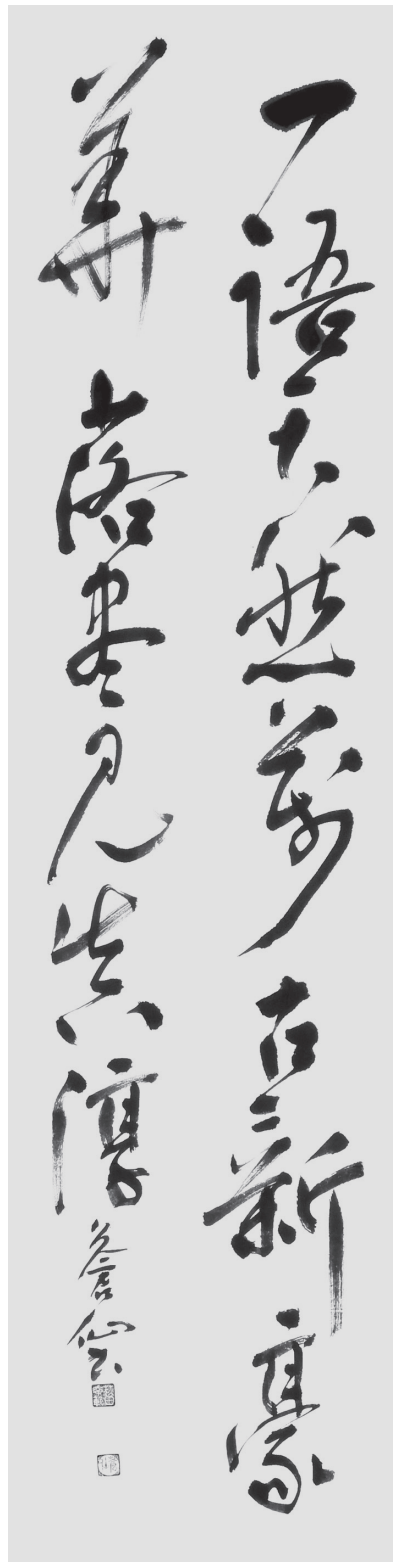 一語天然萬古新豪
華落盡見真淳